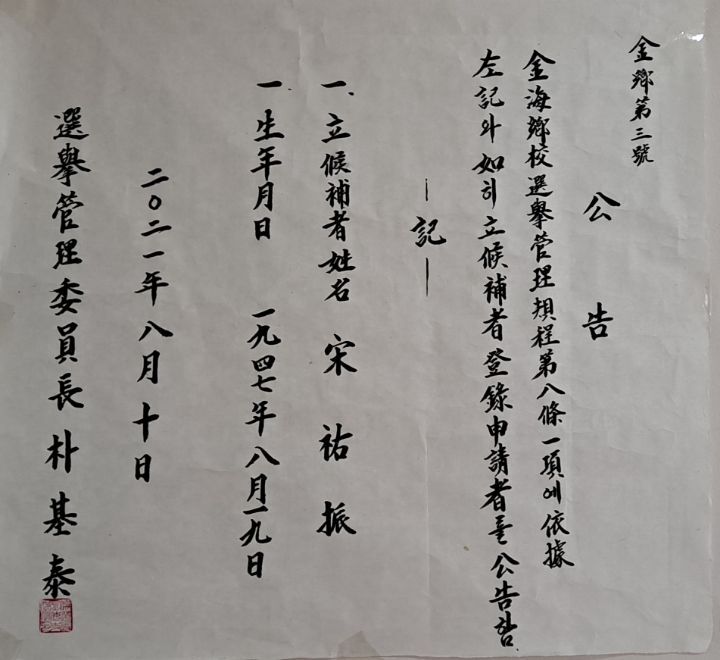 金鄉第三號
公告
金海鄉校選擧管理規程第八條一項에依據
左記와如히立候補者登錄申請者를公告함
-記-
一. 立候補者姓名 宋祐振
一. 生年月日 一九四七年八月一九日
二〇二一年八月十日
選擧管理委員長朴基泰